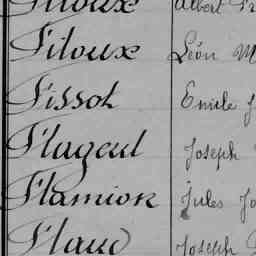 Filoux Albert
Filoux Léon M
Fissot Emile J
Flageul Joseph
Flamion Jules Jo
Flaud Joseph